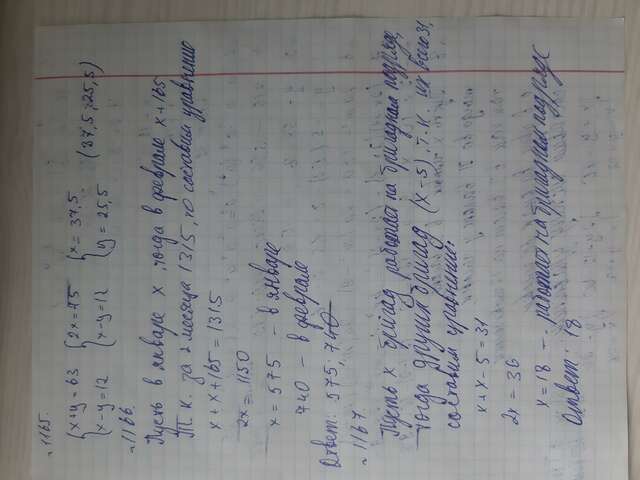 ~1165.
{x+y=63 {2x=75 {x=37,5 (37,5;25,5)
{x-y=12 {x-y=12 {y=25,5
~1166.
Пусть в январе x, тогда в феврале x+165
Т.к. за 2 месяца 1315, то составим уравнение
x+x+165=1315
2x=1150
x=575 - в январе
740 - в феврале
Ответ: 575, 740
~1167.
Пусть x бригад работает на бригадном подряде,
тогда других бригад (x-5), т.к их всего 31,
составим уравнение:
x+x-5=31
2x=36
x=18 - работают на бригадном подряде
Ответ: 18